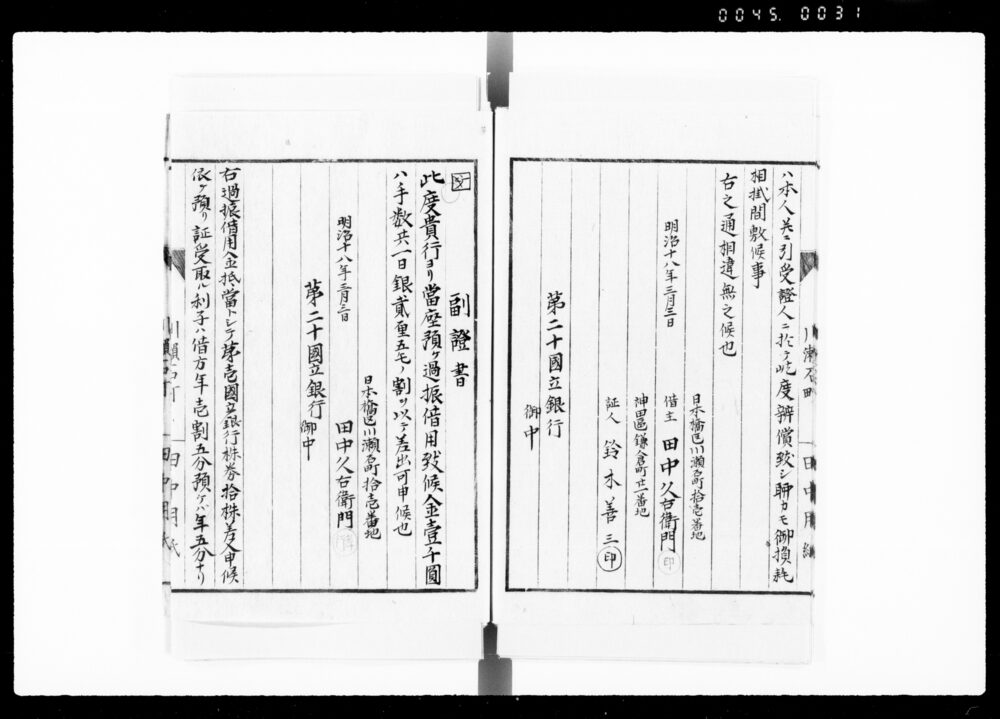 0045. 0031
ハ本人共ニ引受證人ニ於テ屹度辨償致シ聊カモ御損耗
相掛間敷候事
右之通相違無之候也
明治十八年三月三日
日本橋區川瀬石町拾壱番地
借主 田中久右衛門 印
神田區鎌倉町廿一番地
証人 鈴木善三 印
第二十國立銀行
御中
副證書
此度貴行ヨリ當座預ケ過振借用致候金壹千圓
ハ手数共一日銀貳厘五毛ノ割ヲ以テ差出可申候也
明治十八年三月三日
日本橋區川瀬石町拾壱番地
田中久右衛門
第二十國立銀行
御中
右過振借用金抵當トシテ第壱國立銀行株券拾株差入申候
依テ預リ証受取ル利子ハ借方年壱割五分預ケハ年五分ナリ
田中用紙